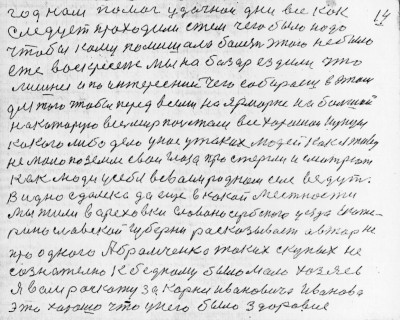 14
год нам помог удачной дни все как
следует проходили стем чего было надо
чтобы кому помишало болше этого небыло
еже воскресеже мы на базар ездили это
лишни а по интересней чего собираец в этом
для того чтобы перед всеми на ярмарке на большой
на каторую всемир почитали все хорошая купцы
какого либо дело у нас у таких людей как
не мало поземли свои глаза протерли и смотреат
как люди усебя всвами родном селе ведут.
Видно сдалека да еще в какой местности
мы жили в ореховки словано сербского уезда екате-
ринославской губерни расказывает автар не
про одного Абрамченко таких скупых не
сознателно к бедному было мало хозяев
я вам роскажу за Корня ивановича Иванова
Это хорошо что унего было здоровия